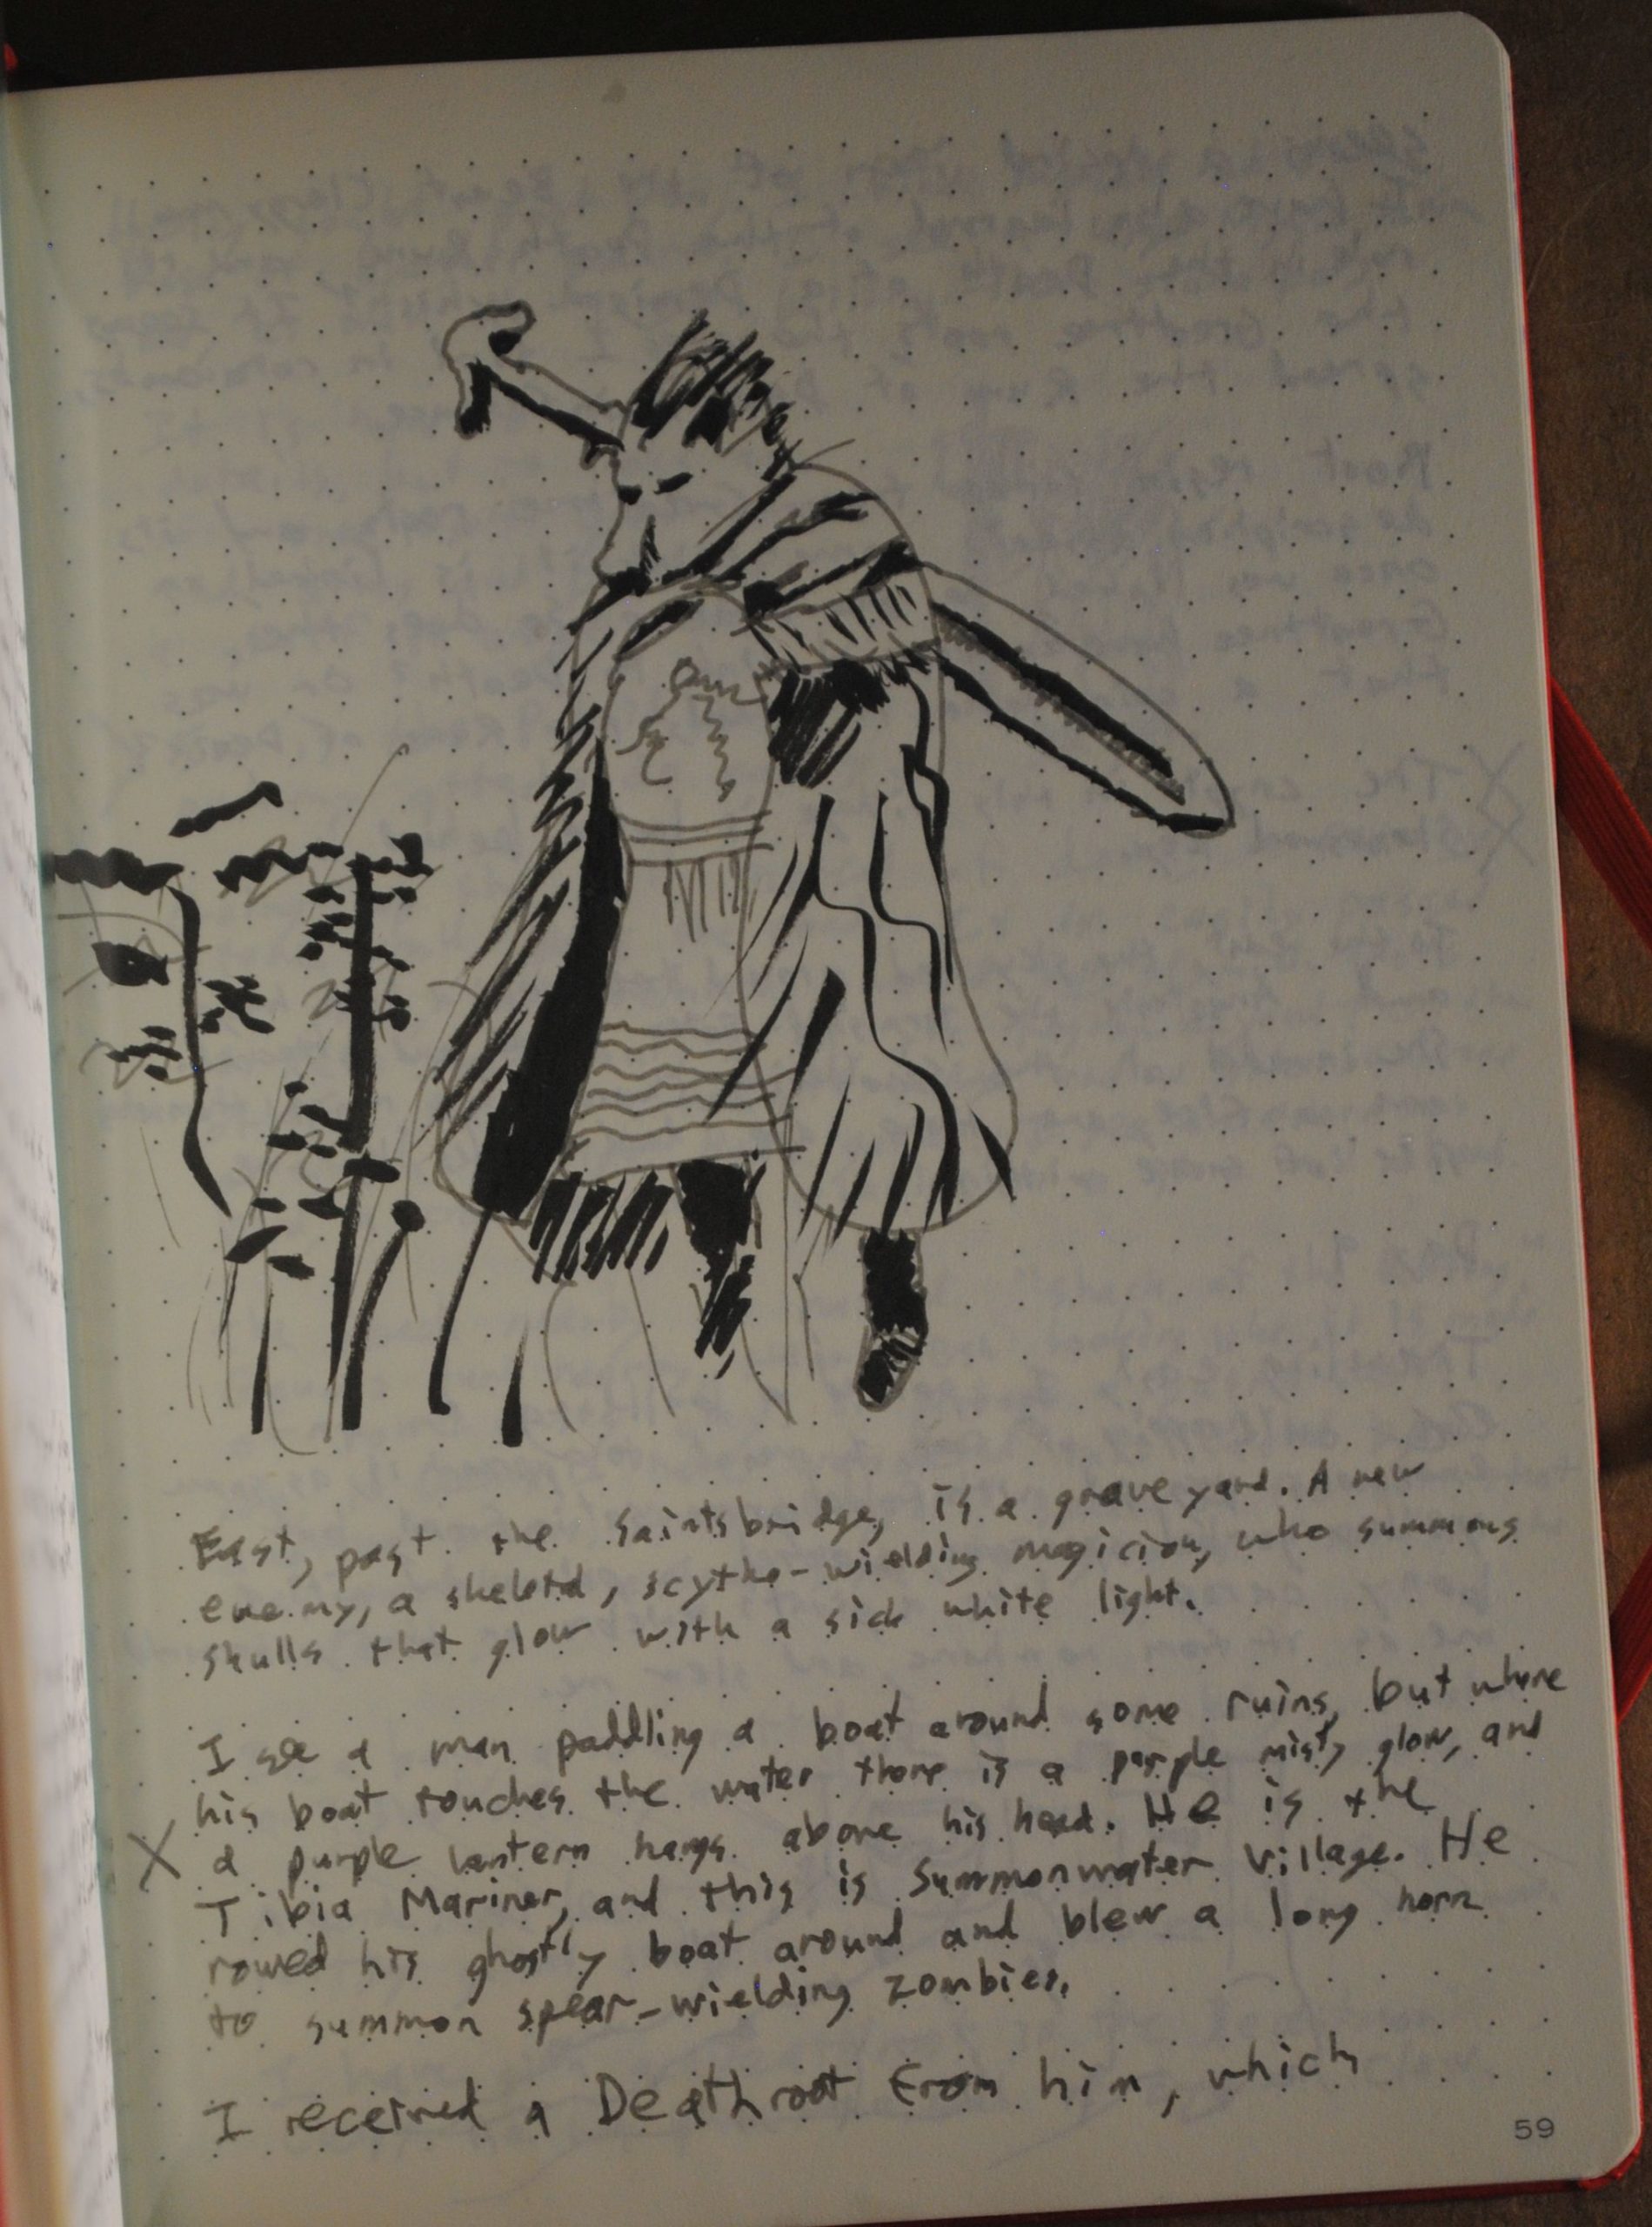 East, past the Saintsbridge, is a graveyard. A new
enemy, a skeletal, scythe-wielding magician, who summons
skulls that glow with a sick white light.
I see a man paddling a boat around some ruins, but where
his boat touches the water there is a purple misty glow, and
X a purple lantern hangs above his head. He is the
Tibia Mariner, and this is Summonwater Village. He
rowed his ghostly boat around and blew a long horn
to summon spear-wielding zombies.
I received a Deathroot from him, which
59